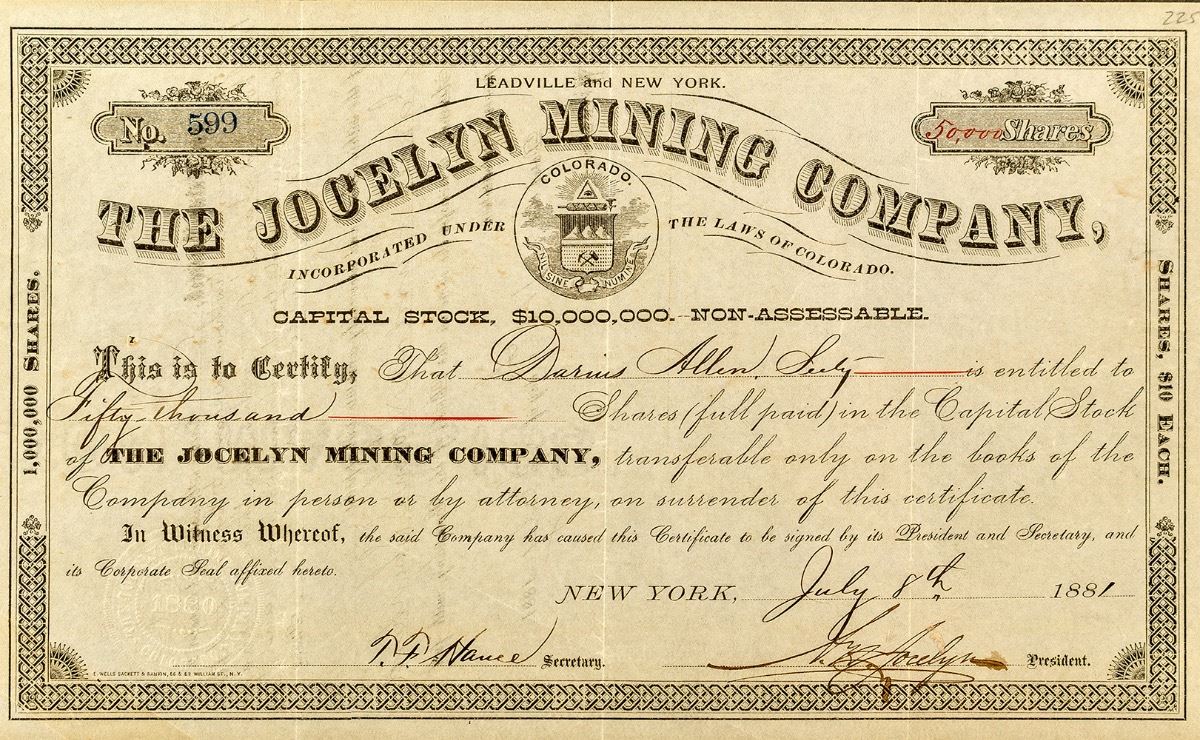 225
LEADVILLE and NEW YORK.
No. 599
50,000 Shares
THE JOCELYN MINING COMPANY,
COLORADO.
NIL SINE NUMINE
INCORPORATED UNDER THE LAWS OF COLORADO.
CAPITAL STOCK, $10,000,000. NON-ASSESSABLE.
1,000,000 SHARES.
SHARES, $10 EACH.
This is to Certify, That Darius Allen, is entitled to
Fifty thousand Shares (full paid) in the Capital Stock
of THE JOCELYN MINING COMPANY, transferable only on the books of the
Company in person or by attorney, on surrender of this certificate.
In Witness Whereof, the said Company has caused this Certificate to be signed by its President and Secretary, and
its Corporate Seal affixed hereto.
1880
NEW YORK, July 8th 1881
T. F. Secretary.
Jocelyn President.
WELLS SACKETT & RANKIN, WILLIAM ST., N.Y.